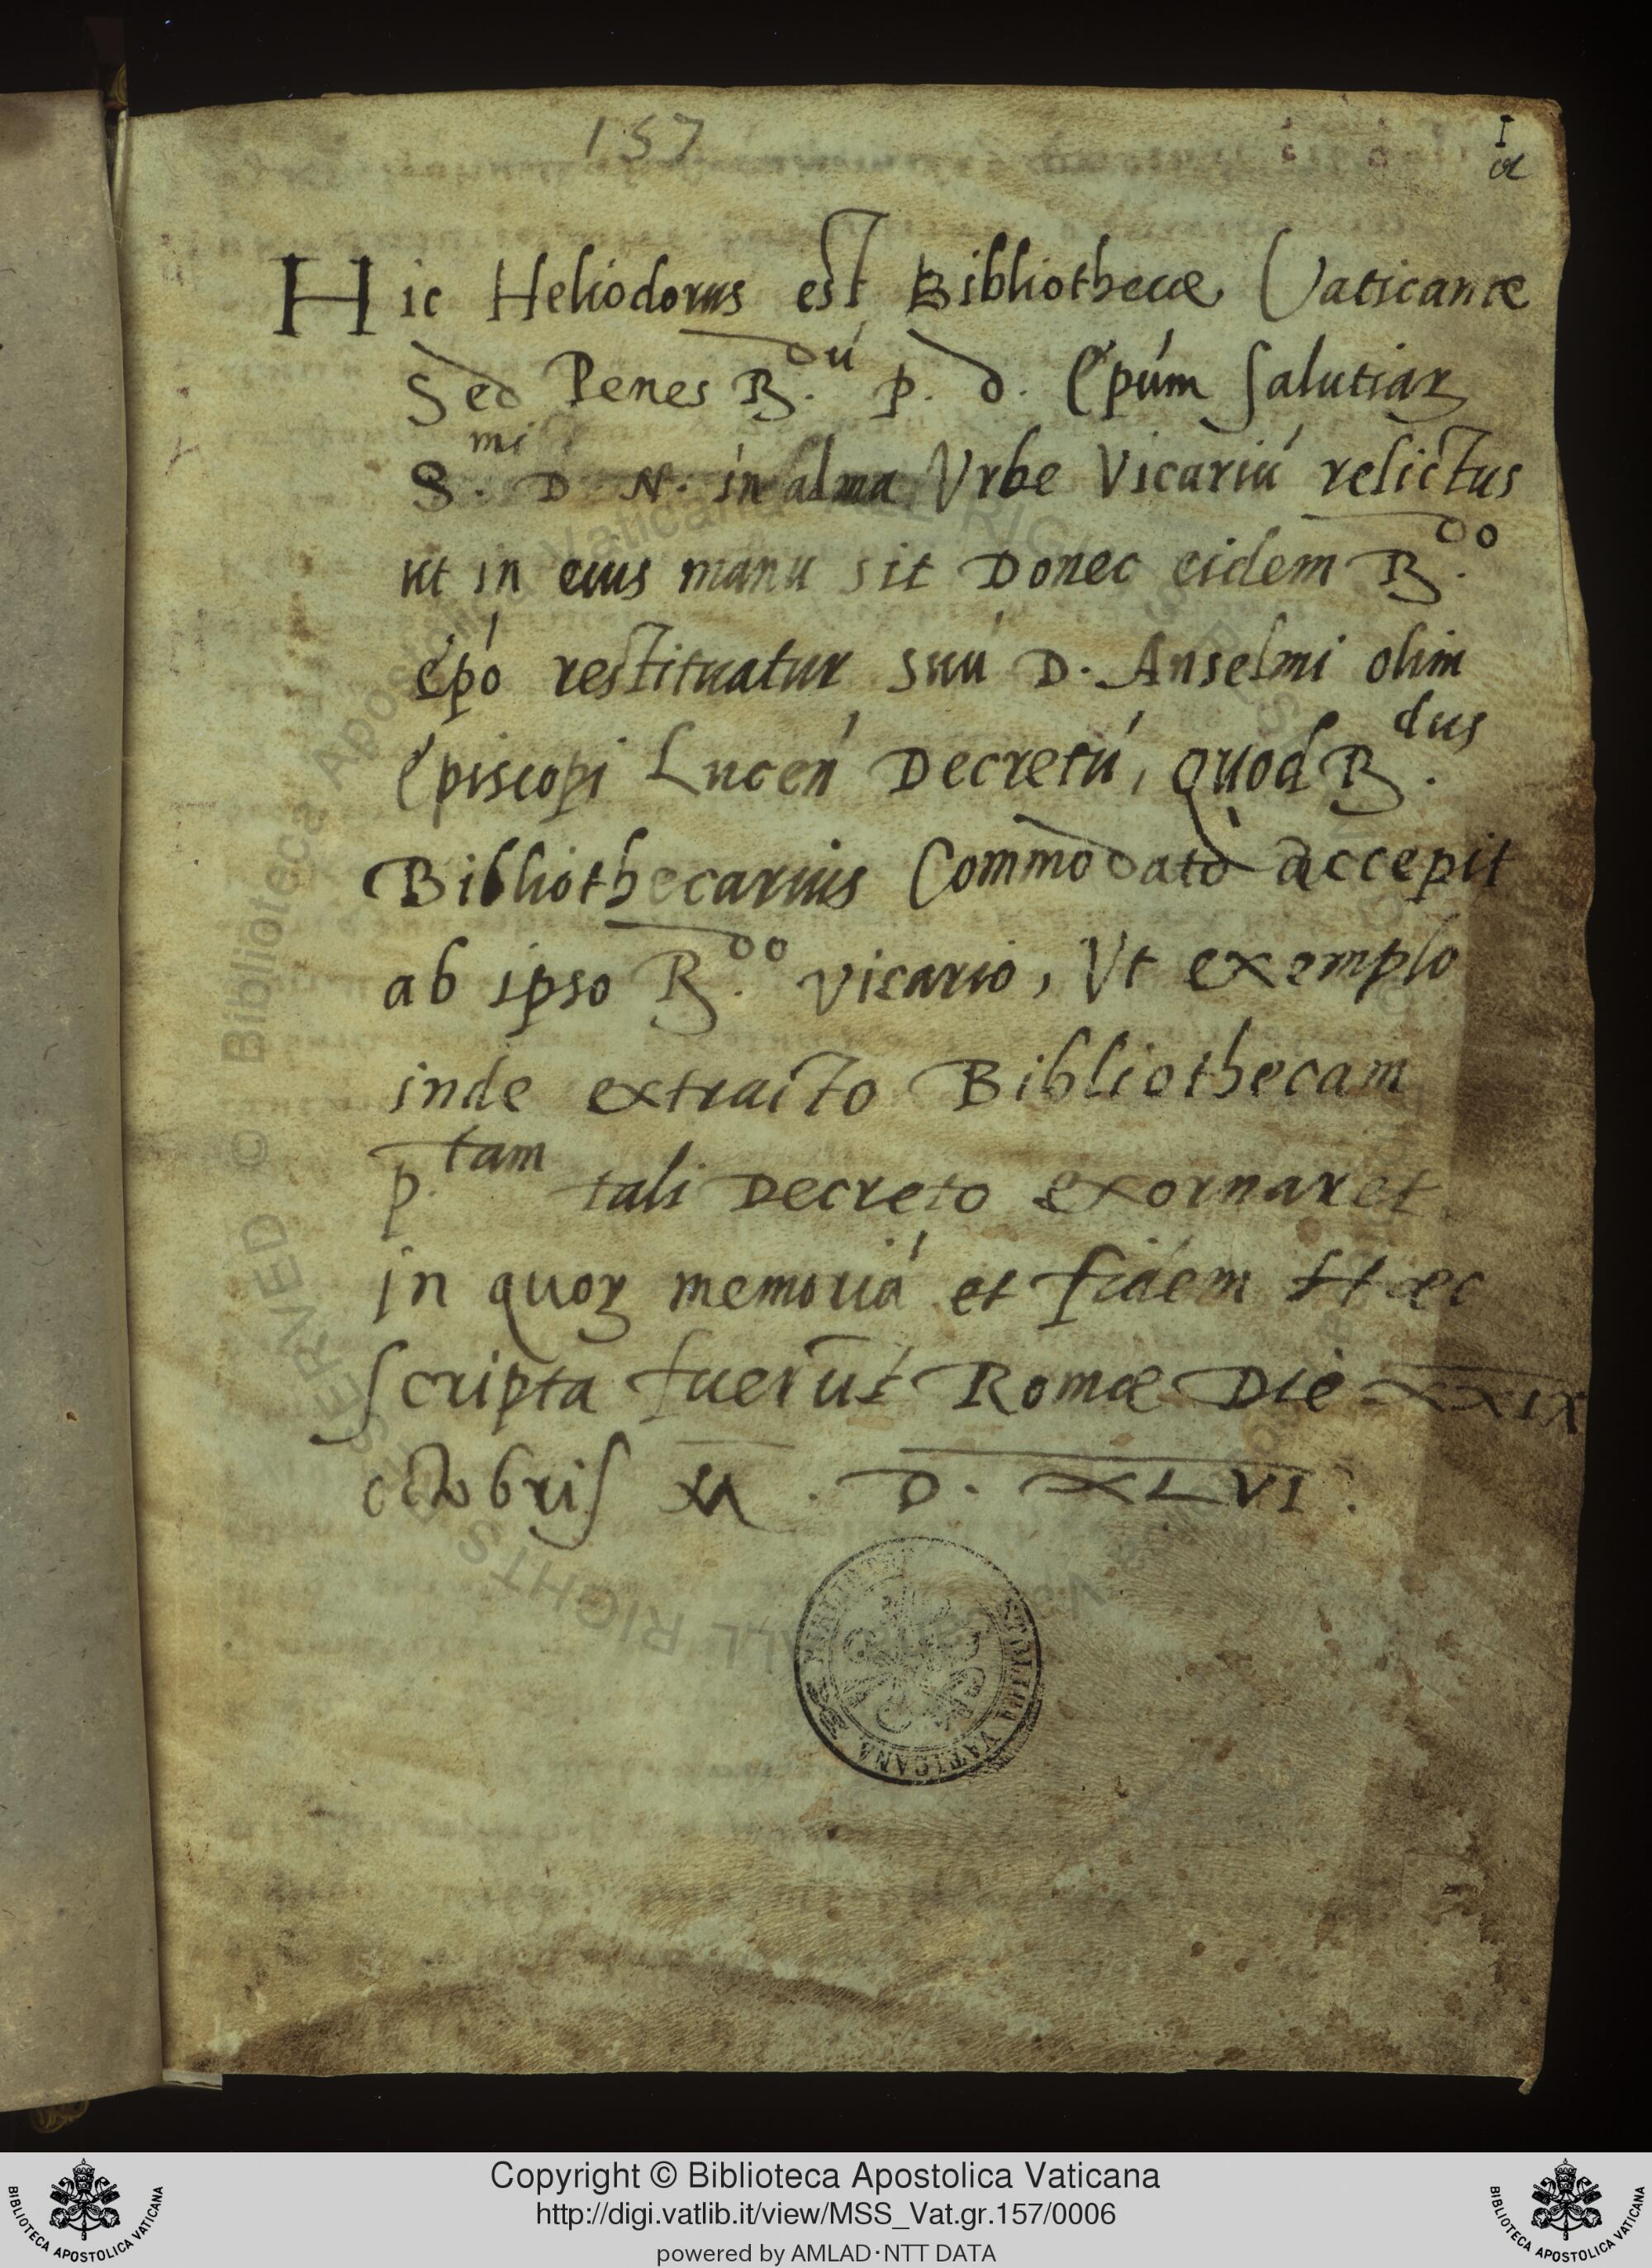 157
I
a
Hic Heliodorus est Bibliothecæ Vaticanæ
Sed Penes R.dú p. d. Epúm Salutiaꝝ
S.mi D. N. in alma Vrbe Vicariú relictus
ut in eius manu sit Donec eidem R.do
epó restituatur suú D. Anselmi olim
Episcopi Lucen̄ Decretú, quod R.dus
Bibliothecarius Commodató accepit
ab ipso R.do vicario, Vt exemplo
inde extracto Bibliothecam
p.tam tali Decreto exornaret
in quoꝝ memoriá et fidem Hæc
scripta fuerūt Romæ Die XXIX
octobris M. D. XLVI.
BIBLIOTECA APOSTOLICA VATICANA
Copyright © Biblioteca Apostolica Vaticana
http://digi.vatlib.it/view/MSS_Vat.gr.157/0006
powered by AMLAD·NTT DATA
BIBLIOTECA APOSTOLICA VATICANA